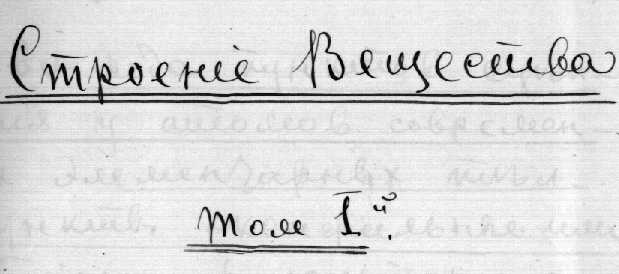 Строеніе Вещества
том I й.